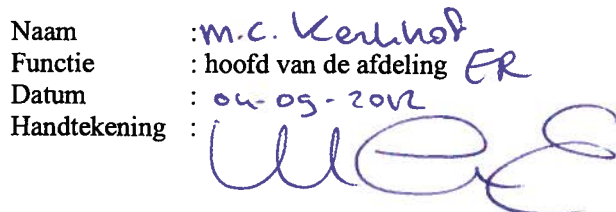 Naam : M.C. Kerkhof
Functie : hoofd van de afdeling ER
Datum : 04-09-2012
Handtekening :